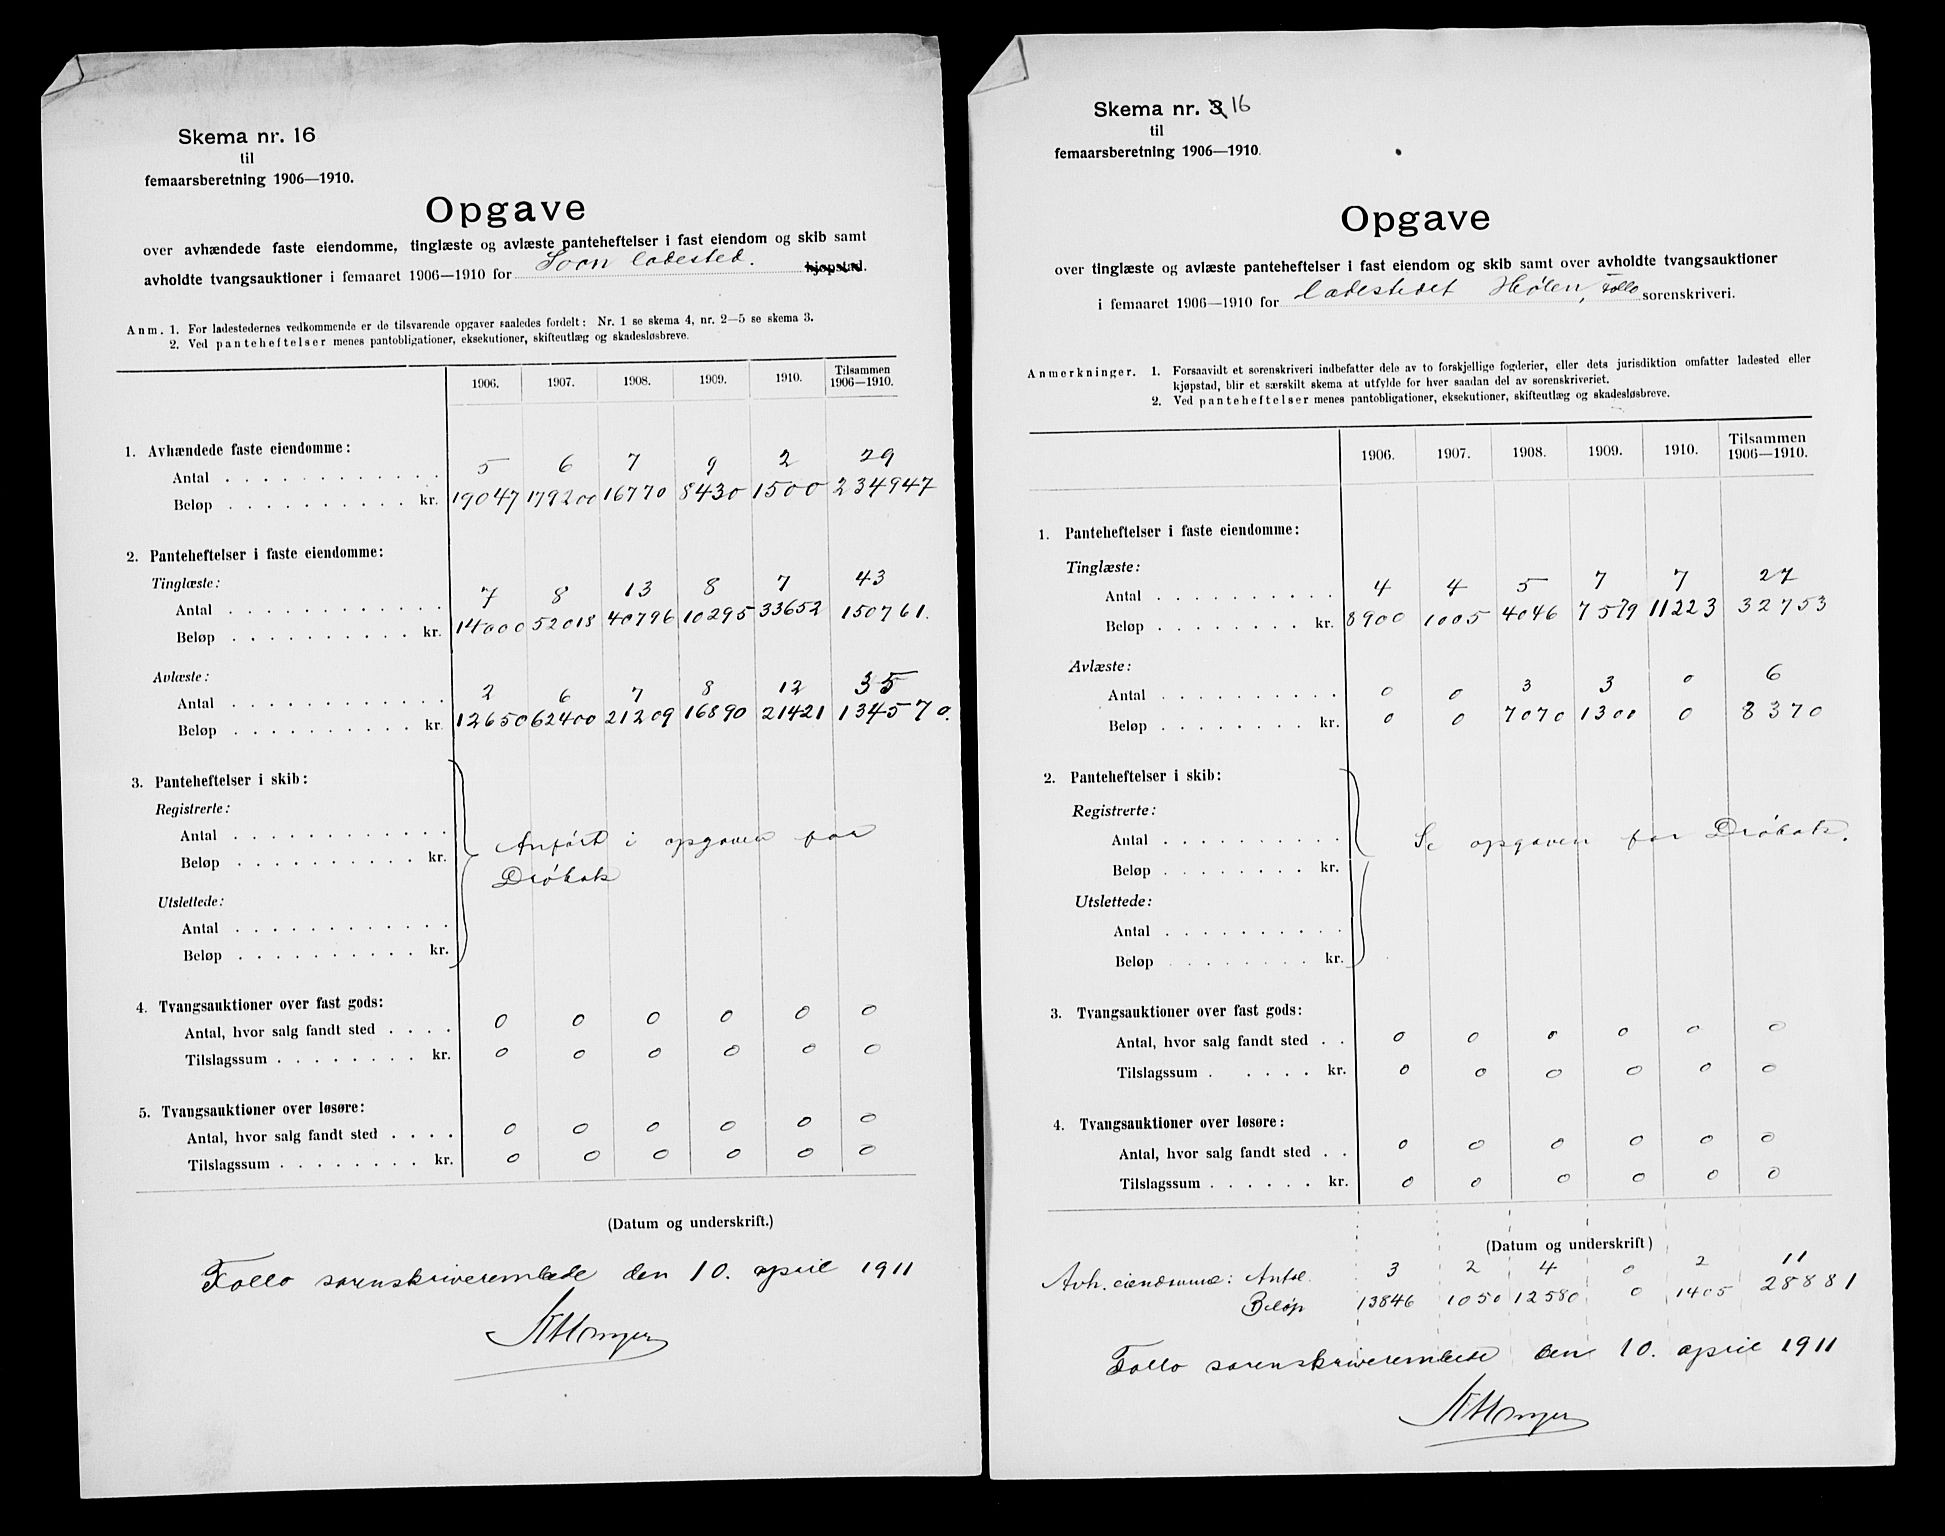 Skema nr. 16
til
femaarsberetning 1906—1910.
Opgave
over avhændede faste eiendomme, tinglæste og avlæste panteheftelser i fast eiendom og skib samt
avholdte tvangsauktioner i femaaret 1906—1910 for Soon ladested. kjøpstad.
Anm. 1. For ladestedernes vedkommende er de tilsvarende opgaver saaledes fordelt: Nr. 1 se skema 4, nr. 2—5 se skema 3.
2. Ved panteheftelser menes pantobligationer, eksekutioner, skifteutlæg og skadesløsbreve.
1906. 1907. 1908. 1909. 1910. Tilsammen 1906—1910.
1. Avhændede faste eiendomme:
Antal 5 6 7 9 2 29
Beløp kr. 19047 179200 16770 8430 1500 234947
2. Panteheftelser i faste eiendomme:
Tinglæste:
Antal 7 8 13 8 7 43
Beløp kr. 14000 52018 40796 10295 33652 150761.
Avlæste:
Antal 2 6 7 8 12 35
Beløp kr. 12650 62400 21209 16890 21421 134570.
3. Panteheftelser i skib:
Registrerte:
Antal
Beløp kr.
Anført i opgaven for
Drøbak
Utslettede:
Antal
Beløp kr.
4. Tvangsauktioner over fast gods:
Antal, hvor salg fandt sted 0 0 0 0 0 0
Tilslagssum kr. 0 0 0 0 0 0
5. Tvangsauktioner over løsøre:
Antal, hvor salg fandt sted 0 0 0 0 0 0
Tilslagssum kr. 0 0 0 0 0 0
(Datum og underskrift.)
Follo sorenskriverembede den 10. april 1911
Skema nr. 3 16
til
femaarsberetning 1906—1910.
Opgave
over tinglæste og avlæste panteheftelser i fast eiendom og skib samt over avholdte tvangsauktioner
i femaaret 1906—1910 for Ladestedet Hølen, Follo sorenskriveri.
Anmerkninger. 1. Forsaavidt et sorenskriveri indbefatter dele av to forskjellige fogderier, eller dets jurisdiktion omfatter ladested eller
kjøpstad, blir et særskilt skema at utfylde for hver saadan del av sorenskriveriet.
2. Ved panteheftelser menes pantobligationer, eksekutioner, skifteutlæg og skadesløsbreve.
1906. 1907. 1908. 1909. 1910. Tilsammen 1906—1910.
1. Panteheftelser i faste eiendomme:
Tinglæste:
Antal 4 4 5 7 7 27
Beløp kr. 8900 1005 4046 7579 11223 32753
Avlæste:
Antal 0 0 3 3 0 6
Beløp kr. 0 0 7070 1300 0 8370
2. Panteheftelser i skib:
Registrerte:
Antal
Se opgaven for Drøbak.
Beløp kr.
Utslettede:
Antal
Beløp kr.
3. Tvangsauktioner over fast gods:
Antal, hvor salg fandt sted 0 0 0 0 0 0
Tilslagssum kr. 0 0 0 0 0 0
4. Tvangsauktioner over løsøre:
Antal, hvor salg fandt sted 0 0 0 0 0 0
Tilslagssum kr. 0 0 0 0 0 0
(Datum og underskrift)
Avh. eiendomme: Antal. 3 2 4 0 2 11
Beløp 13846 1050 12580 0 1405 28881
Follo sorenskriverembede den 10. april 1911